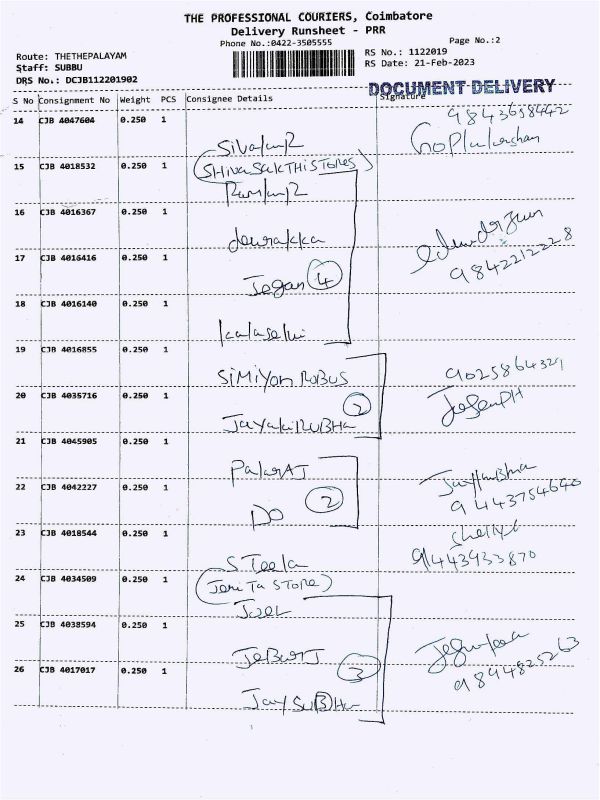 THE PROFESSIONAL COURIERS, Coimbatore
Delivery Runsheet - PRR
Phone No.:0422-3505555 Page No.:2
Route: THETHEPALAYAM RS No.: 1122019
Staff: SUBBU RS Date: 21-Feb-2023
DRS No.: DCJB112201902
DOCUMENT DELIVERY
S No Consignment No Weight PCS Consignee Details Signature
14 CJB 4047604 0.250 1
9843658442
15 CJB 4018532 0.250 1
(SHIVASAKTHI STORES)
16 CJB 4016367 0.250 1
devrakka
17 CJB 4016416 0.250 1
Jegan 4
9842212228
18 CJB 4016140 0.250 1
kalaselvi
19 CJB 4016855 0.250 1
SiMiYon ROBUS
9025864321
20 CJB 4035716 0.250 1
2 JosepH
JayakiRUBHa
21 CJB 4045905 0.250 1
PalarAJ
22 CJB 4042227 0.250 1
2
9443754640
DO
23 CJB 4018544 0.250 1
9443933870
STeela
24 CJB 4034509 0.250 1
(JeriTa STORE)
JoeL
25 CJB 4038594 0.250 1
JeBaRJ
26 CJB 4017017 0.250 1
3
9894825263
JaySUBHa